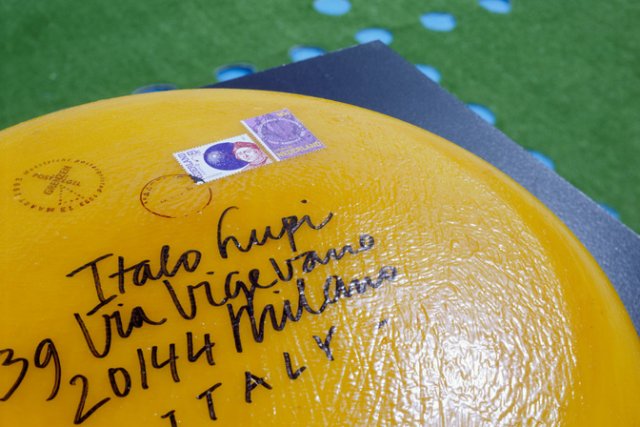 NEDERLAND
Italo Lupi
39 Via Vigevano
20144 Milano
ITALY.